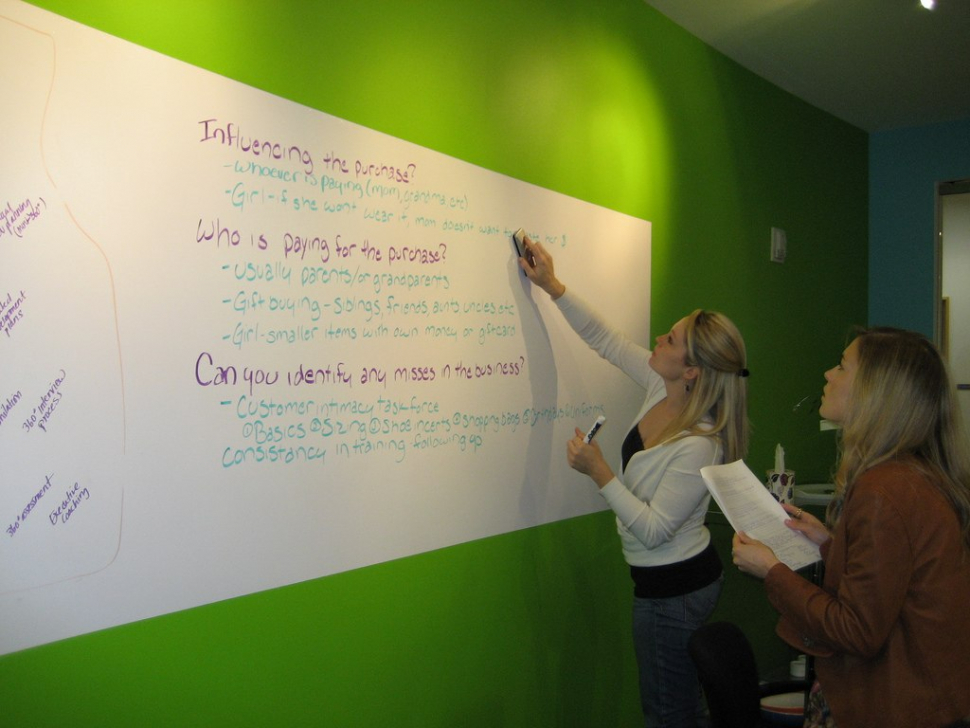 Influencing the purchase?
-whoever is paying (mom, grandma, etc)
-Girl-if she wont wear it, mom doesn't want to
Who is paying for the purchase?
-usually parents/or grandparents
-Gift buying - siblings, friends, aunts, uncles, etc
-Girl-smaller items with own money or giftcard
Can you identify any misses in the business?
-Customer intimacy taskforce
@Basics @Sizing @Shoe incerts @shopping bags
consistancy in training following up
360° interview
process
360° assessment
Executive
coaching